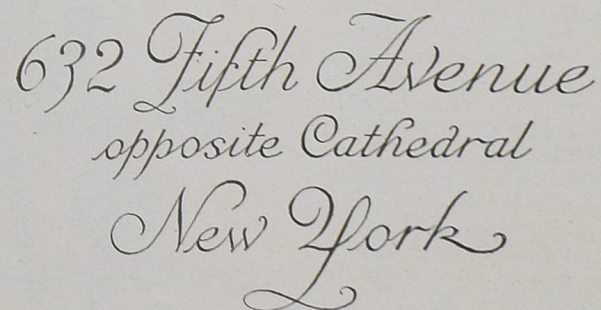 632 Fifth Avenue
opposite Cathedral
New York